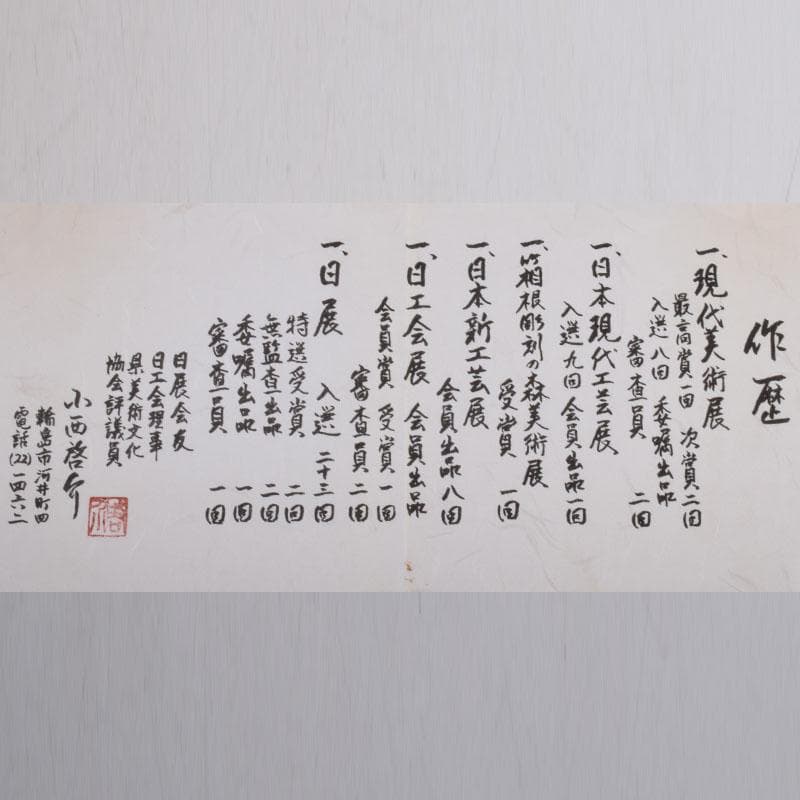 作歴
一、現代美術展
最高賞一回 次賞二回
入選八回 委嘱出品
審査員 二回
一、日本現代工芸展
入選九回 会員出品一回
一、箱根彫刻の森美術展
受賞 一回
一、日本新工芸展
会員出品八回
一、日工会展 会員出品
会員賞 受賞一回
審査員 二回
一、日展 入選 二十三回
特選受賞 二回
無監査出品 二回
委嘱出品 一回
審査員 一回
日展会友
日工会理事
県美術文化
協会評議員
小西啓介
輪島市河井町四
電話(22)一四六二